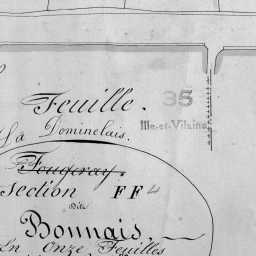 Feuille.
35
Ille-et-Vilaine
La Dominelais.
Fougeray.
Section FF4
Dite
Bonnais,
En Onze Feuilles